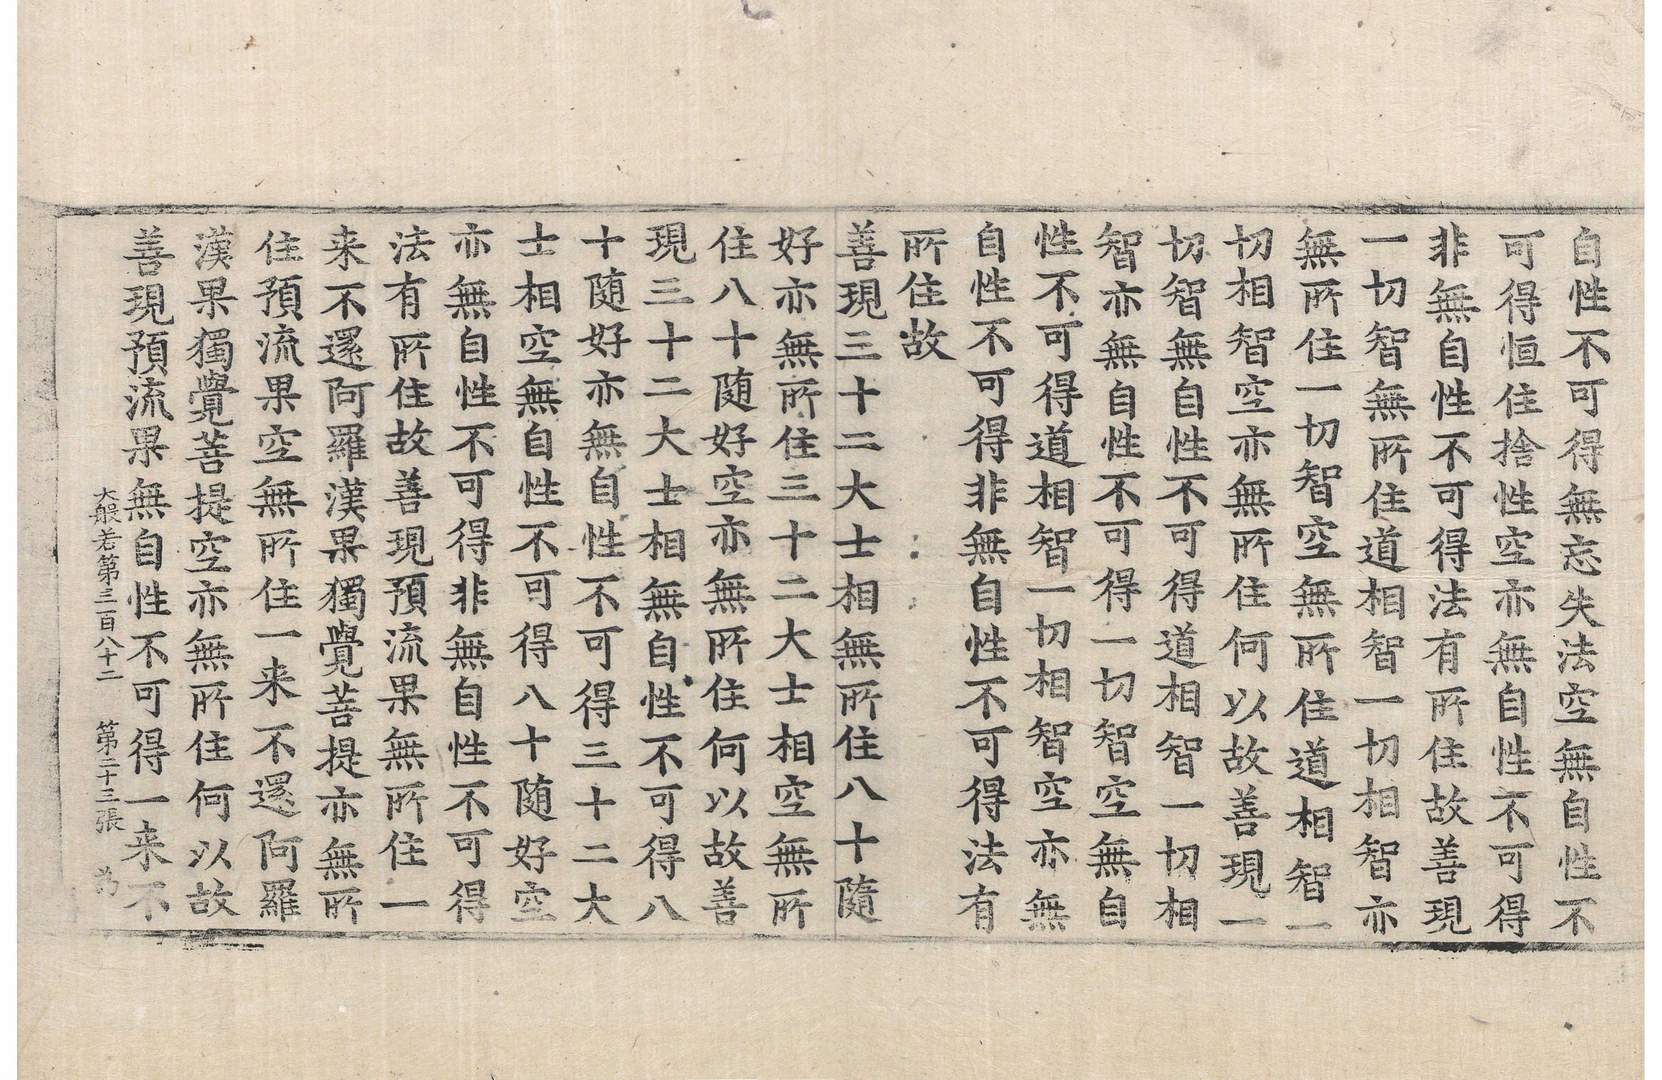 自性不可得無忘失法空無自性不
可得恒住捨性空亦無自性不可得
非無自性不可得法有所住故善現
一切智無所住道相智一切相智亦
無所住一切智空無所住道相智一
切相智空亦無所住何以故善現一
切智無自性不可得道相智一切相
智亦無自性不可得一切智空無自
性不可得道相智一切相智空亦無
自性不可得非無自性不可得法有
所住故
善現三十二大士相無所住八十隨
好亦無所住三十二大士相空無所
住八十随好空亦無所住何以故善
現三十二大士相無自性不可得八
十随好亦無自性不可得三十二大
士相空無自性不可得八十随好空
亦無自性不可得非無自性不可得
法有所住故善現預流果無所住一
来不還阿羅漢果獨覺菩提亦無所
住預流果空無所住一来不還阿羅
漢果獨覺菩提空亦無所住何以故
善現預流果無自性不可得一来不
大般若第三百八十二 第二十三張